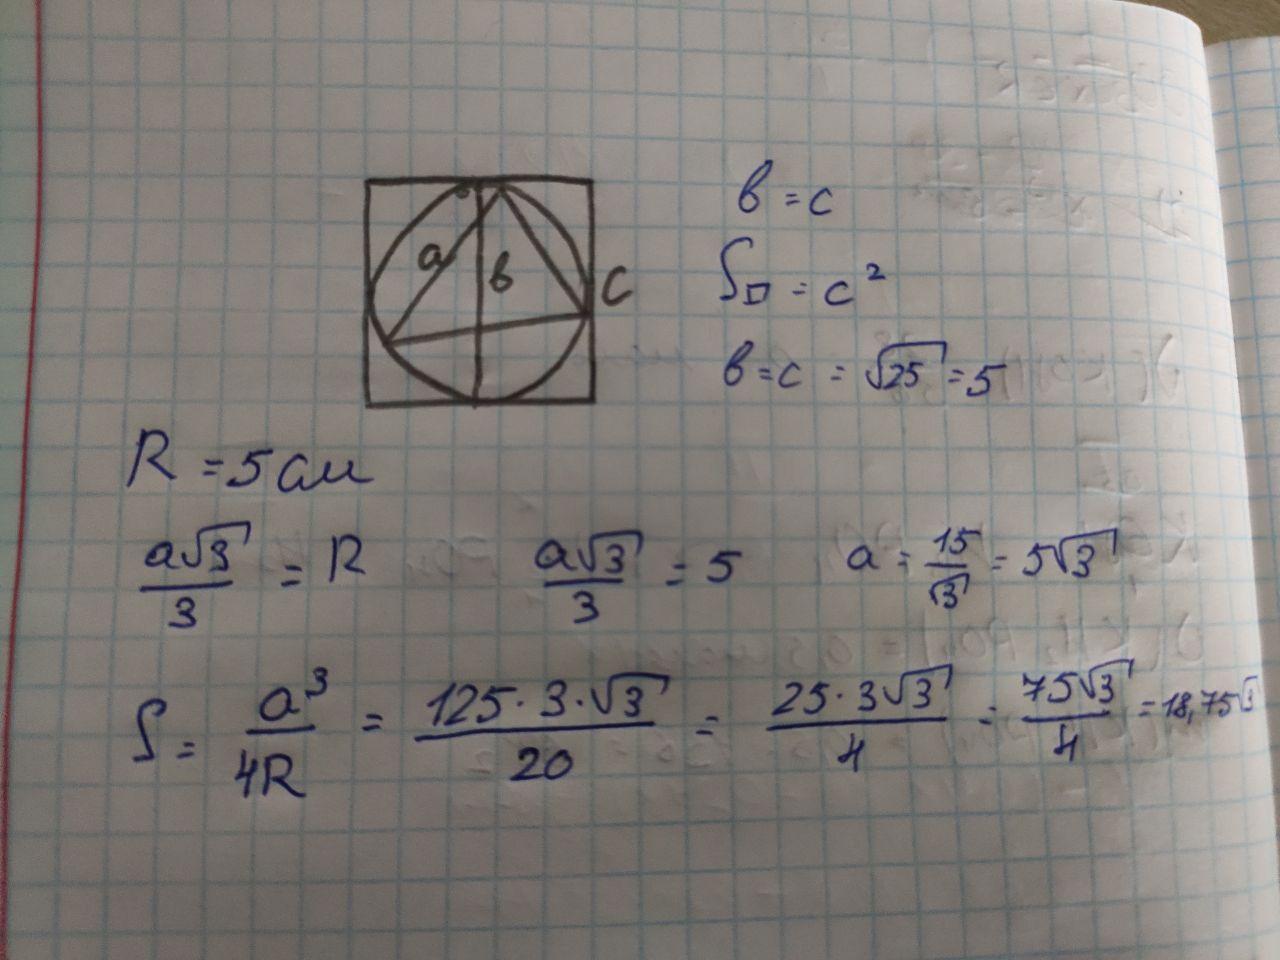 a
в
c
в = c
S□ = c²
в = c = √25 = 5
R = 5 см
a√3/3 = R a√3/3 = 5 a = 15/√3 = 5√3
S = a³/4R = 125·3·√3/20 = 25·3√3/4 = 75√3/4 = 18,75√3